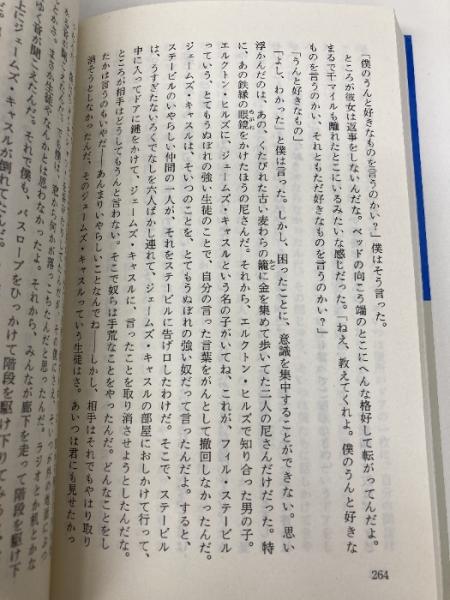 「僕のうんと好きなものを言うのかい？」僕はそう言った。
ところが彼女は返事をしないんだな。ベッドの向こう端のとこにへんな格好して転がってんだよ。
まるで千マイルも離れたとこにいるみたいな感じだった。「ねえ、教えてくれよ。僕のうんと好きな
ものを言うのかい、それともただ好きなものを言うのかい？」
「うんと好きなもの」
「よし、わかった」と僕は言った。しかし、困ったことに、意識を集中することができない。思い
浮かんだのは、あの、くたびれた古い麦わらの籠に金を集めて歩いてた二人の尼さんだけだった。特
に、あの鉄縁の眼鏡をかけたほうの尼さんだ。それから、エルクトン・ヒルズで知り合った男の子。
エルクトン・ヒルズに、ジェームズ・キャスルという名の子がいてね、これが、フィル・ステービル
っていう、とてもうぬぼれの強い生徒のことで、自分の言った言葉をがんとして撤回しなかったんだ。
ジェームズ・キャスルは、そいつのことを、とてもうぬぼれの強い奴だって言ったんだよ。すると、
ステービルのいやらしい仲間の一人が、それをステービルに告げ口したわけだ。そこで、ステービル
は、うすぎたないろくでなしを六人ばかし連れて、ジェームズ・キャスルの部屋におしかけて行って、
中に入ってドアに鍵をかけて、ジェームズ・キャスルに、言ったことを取り消させようとしたんだな。
ところが相手はどうしてもうんと言わない。そこで奴らは手荒なことをやったんだ。どんなことをし
たかは言うのもいやだ――あんまりいやらしいことなんでね――しかし、相手はそれでもやはり取り
消そうとしなかったんだ、そのジェームズ・キャスルっていう生徒はさ。あいつは君にも見せたかっ
264
とかさ、まさか生徒やなんかとは思わなかったよ。それから、みんなが廊下を走って階段を駆け下
りゆく音が聞こえたんだ。それで僕も、バスローブをひっかけて階段を駆け下りてみると
上にジェームズ・キャスルが倒れてたんだ。